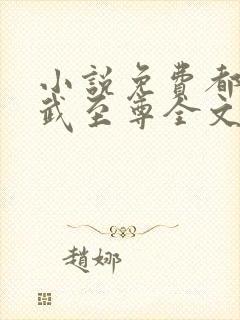 小説免費都
武至尊全文
趙娜